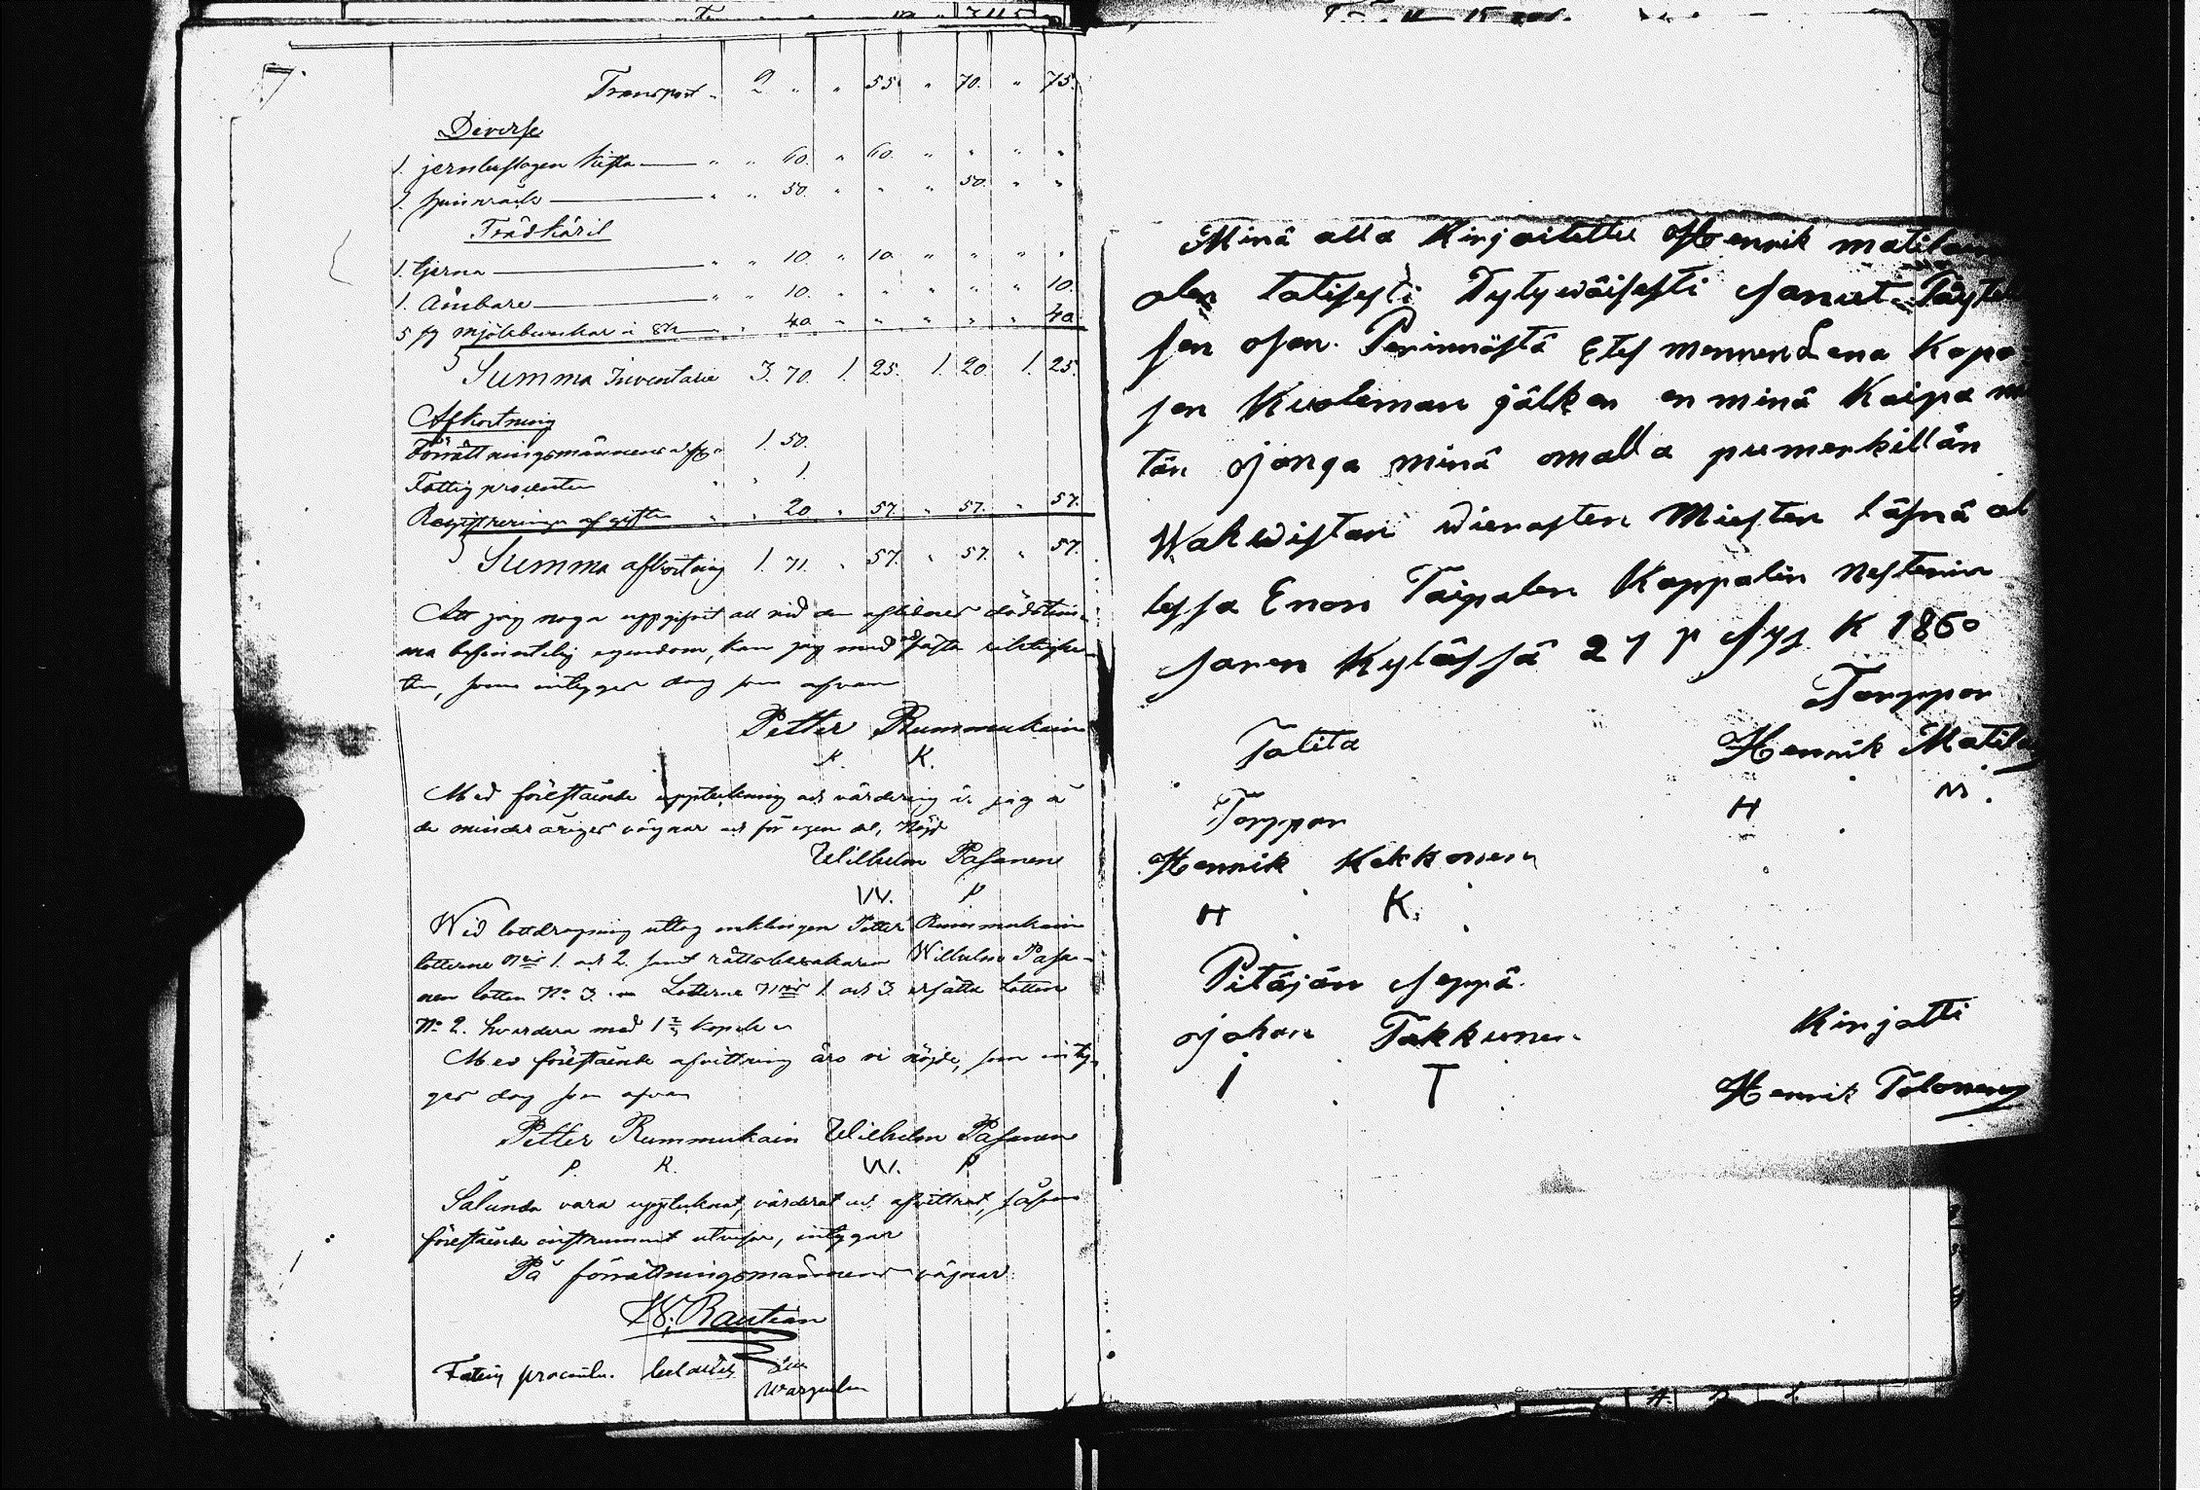 7.
Transport " 2 " " 55 " 70. " 75.
Diverse
1. jernbeslagen kista " " 60. " 60. " " " "
1. spinnråck " " 50. " " " 50. " "
Trädkäril
1. tjerna " " 10. " 10. " " " "
1. Ämbare " " 10. " " " " " 10.
5 st mjölkbunkar à 8 k " " 40. " " " " " 40.
Summa Inventarie 3. 70. 1. 25. 1. 20. 1. 25.
Afkortning
Förrättningsmännens 1. 50.
Fattig procenten " " 1.
Registrerings afgiften " " 20. " 57. " 57. " 57.
Summa afkortning 1. 71. " 57. " 57. " 57.
Att jag noga uppgifvit all vid den aflidnes dödstim-
ma befintelig egendom, kan jag med ed fästa riktighe-
ten, som intygar dag som ofvan
Petter Rummukain
P. R.
Med förestående uppteckning och värdering är jag å
de minderåriges vägnar och för egen del, nöjd
Wilhelm Pasanen
W. P
Wid lottdragning uttog enklingen Petter Rummukain
lotterne N:ris 1. och 2. samt rättsbevakaren Wilhelm Pasa-
nen lotten N:o 3. Lotterne N:ris 1. och 3. ersätta lotten
N:o 2. hvardera med 1 2/3 kopek
Med förestående afvittring äro vi nöjde, som inty-
gas dag som ofvan
Petter Rummukain Wilhelm Pasanen
P. R. W. P
Sålunda vara upptecknat, värderat och afvittrat, såsom
förestående instrument utvisar, intygar
På förrättningsmännens vägnar:
W. Rautian
Fattig procenten
Minä alla Kirjoitettu Henrik matilain
olen totisesti Tytywäisesti sanut Täyte
sen osan Perinnöstä Etes mennen Lena Kopo
sen Kuoleman jälken en minä Kaipa m
tän jonga minä omalla pumerkillän
Wahwistan wierasten Miesten läsnä ol
lessa Enon Taipalen Kappalin Nestenin
saren Kylässä 27 p Syy. K 1860
Torppar
Totita Henrik Matila
H M.
Torppar
Henrik Kekkonen
H K.
Pitäjän seppä
johan Takkunen
I T
Kirjotti
Henrik Tolonen